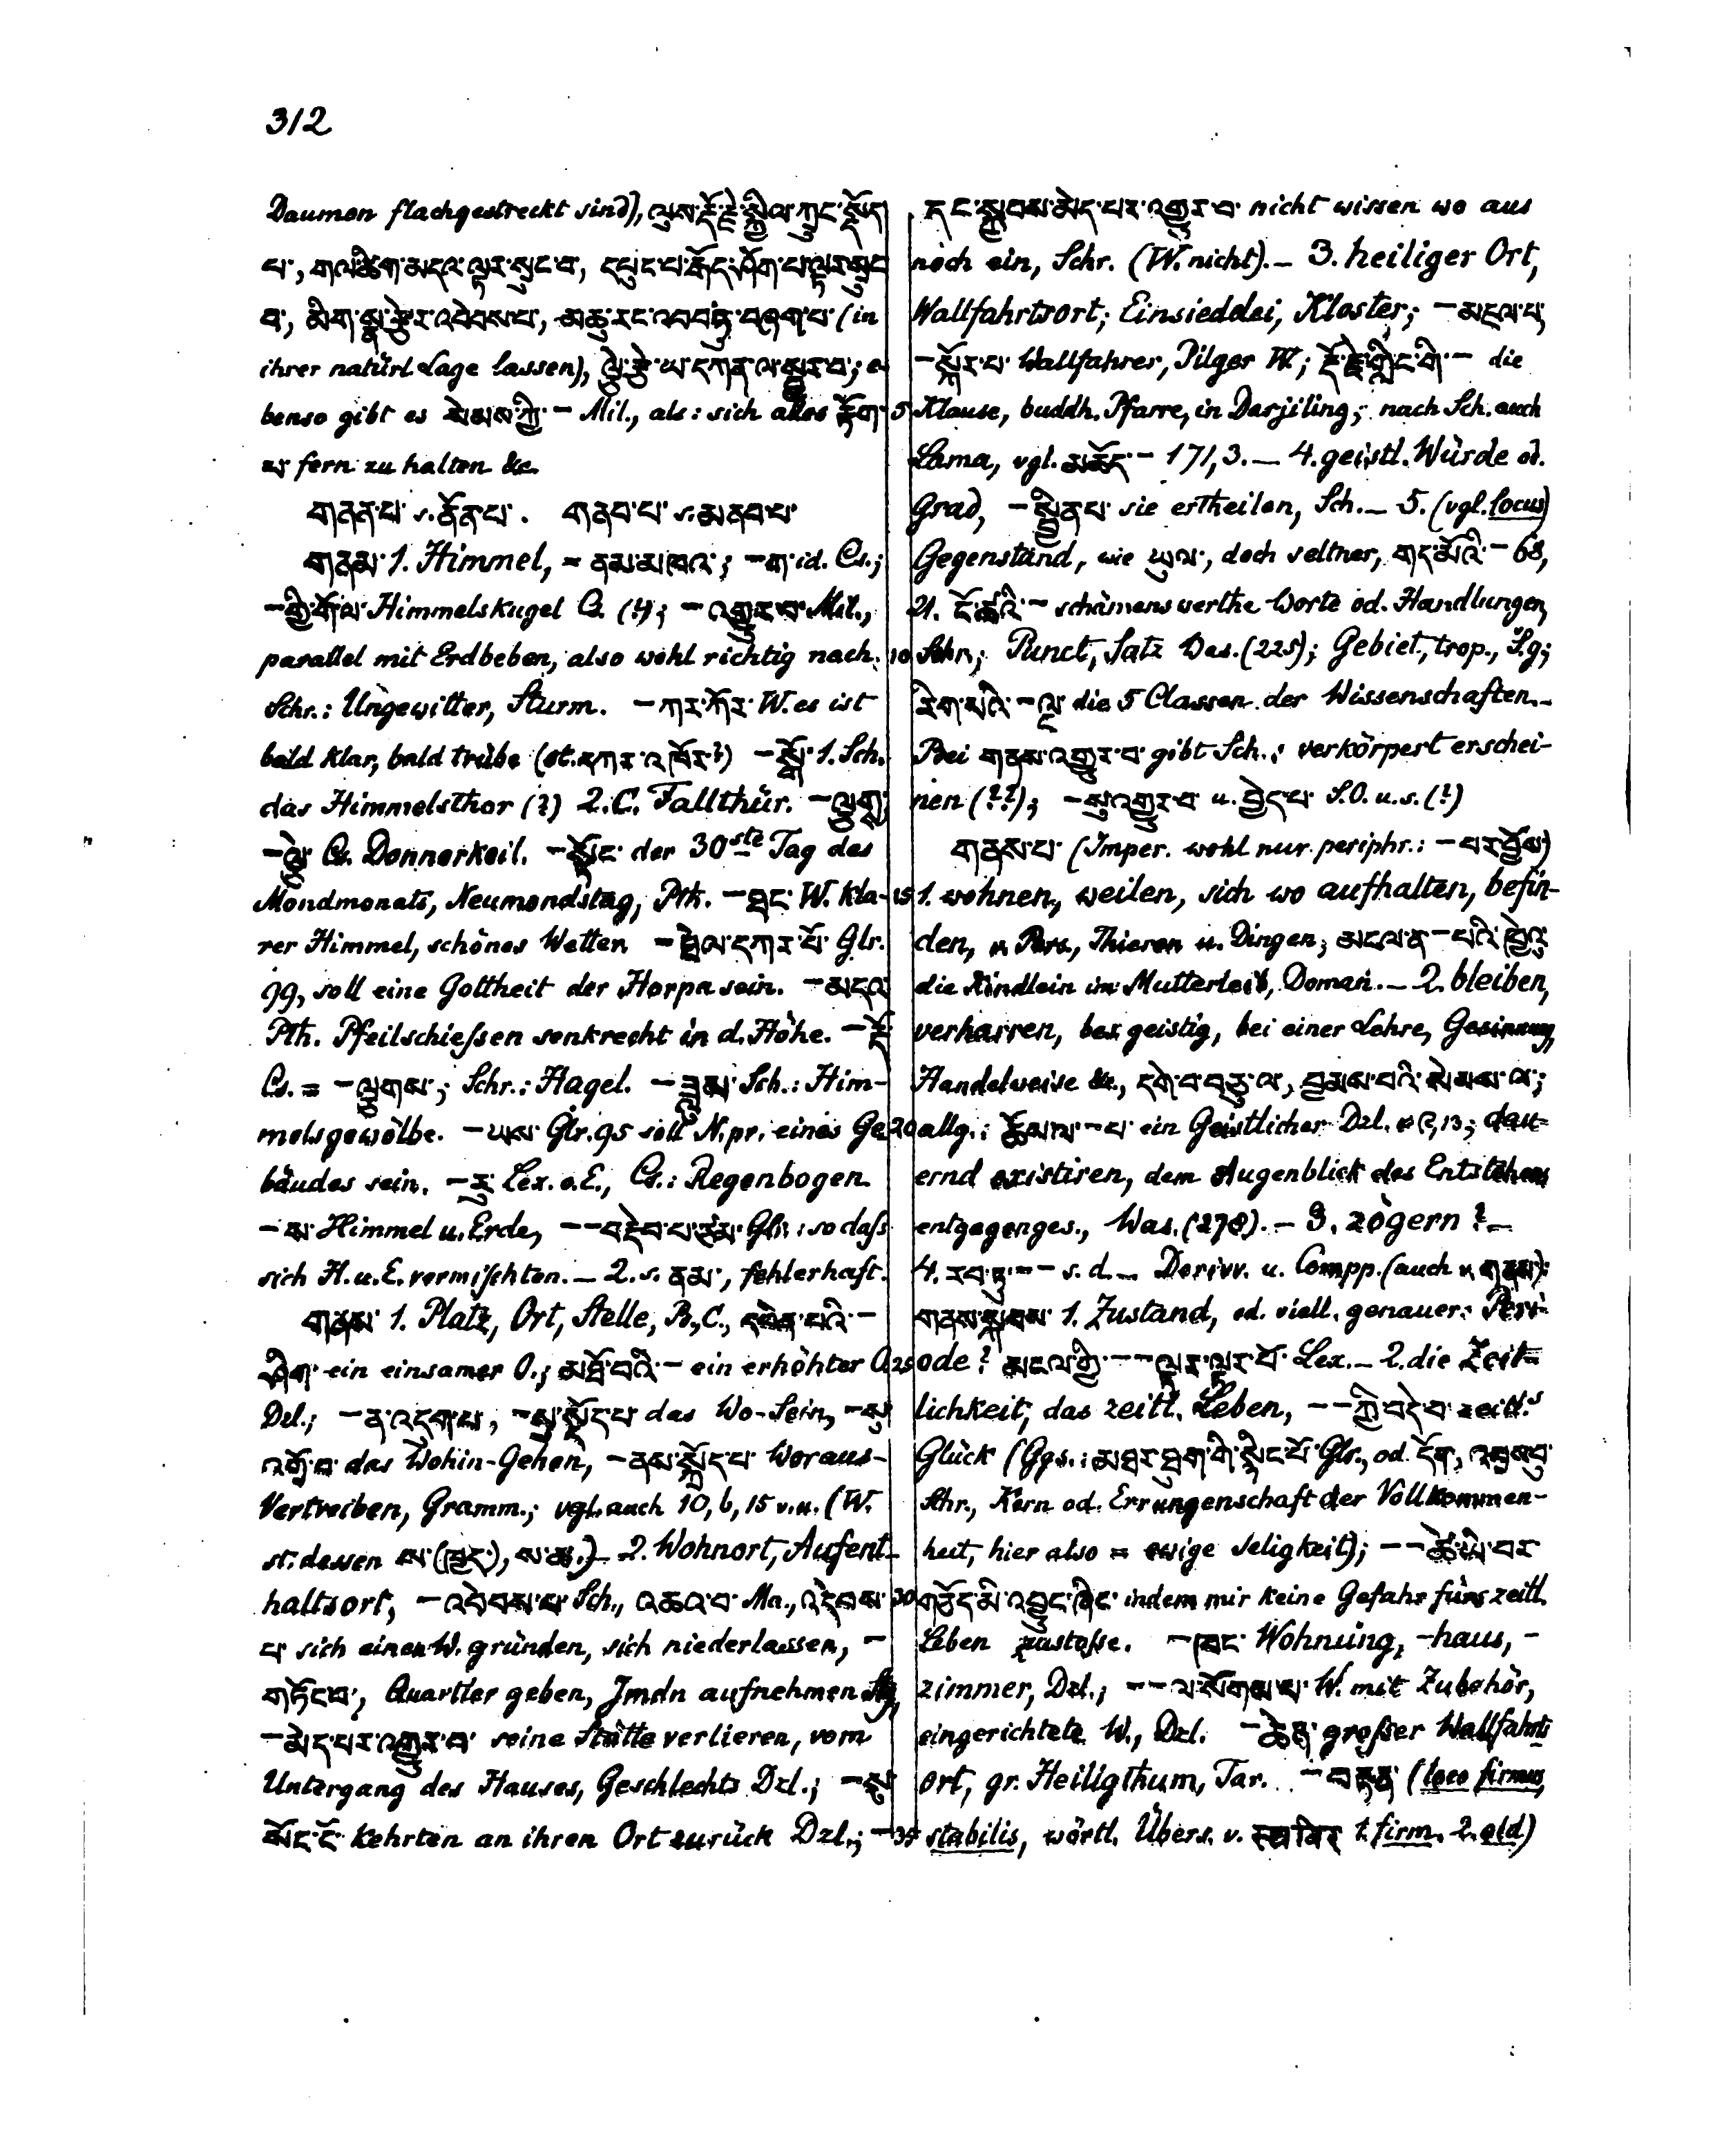 312
Daumen flachgestreckt sind), ལུས་རྡོ་རྗེ་སྐྱིལ་ཀྲུང་སྡོད
པ་, གལ་ཚིག་མདའ་ལྟར་སྲང་བ་, དཔུང་པ་རྒོད་ཤོག་པ་ལྟར་སྲང
བ་, མིག་སྣ་རྩེར་འབེབས་པ་, མཆུ་རང་འབབ་ཏུ་བཞག་པ་ (in
ihrer natürl. Lage lassen), ལྕེ་རྩེ་ཡ་དཀན་ལ་སྦྱར་བ་; e
benso gibt es སེམས་ཀྱི་ – Mil., als: sich alles རྟོག་
པ་ fern zu halten &c.
གནན་པ་ s. ནོན་པ་. གནབ་པ་ s. མནབ་པ་
གནམ་ 1. Himmel, = ནམ་མཁའ་; –ག་ id. Cs.;
–གྱི་གོ་ལ་ Himmelskugel Cs. (?); –འགྱུར་བ་ Mil.,
parallel mit Erdbeben, also wohl richtig nach
Schr.: Ungewitter, Sturm. –ཀར་ཀོར་ W. es ist
bald klar, bald trübe (st. དཀར་འཁོར་?) –སྒོ་ 1. Sch.
das Himmelsthor (?) 2. C. Fallthür. –ལྕགས་
–ལྕེ་ Cs. Donnerkeil. –སྟོང་ der 30ste Tag des
Mondmonats, Neumondstag, Pth. –ཐང་ W. kla-
rer Himmel, schönes Wetter –ཐེལ་དཀར་པོ་ Glr.
99, soll eine Gottheit der Horpa sein. –མདའ་
Pth. Pfeilschießen senkrecht in d. Höhe. –རྡོ་
Cs. = –ལྕགས་; Schr.: Hagel. –ཟླུམ་ Sch.: Him-
melsgewölbe. –ཡས་ Glr. 95 soll N. pr. eines Ge
bäudes sein. –རུ་ Lex. o. E., Cs.: Regenbogen.
–ས་ Himmel u. Erde, ––བརྡེབ་པ་ཙམ་ Glr.: so daß
sich H. u. E. vermischten. – 2. s. ནམ་, fehlerhaft.
གནས་ 1. Platz, Ort, Stelle, B., C., དབེན་པའི་ –
ཤིག་ ein einsamer O.; མཐོ་བའི་ – ein erhöhter O.
Dzl.; –ན་འདུག་པ་, –སུ་སྡོད་པ་ das Wo-Sein, –སུ་
འགྲོ་བ་ das Wohin-Gehen, –ནས་སྐྲོད་པ་ Woraus-
Vertreiben, Gramm.; vgl. auch 10, b, 15 v. u. (W.
st. dessen ས་(ཁྱད་), ས་ཆ་.) – 2. Wohnort, Aufent-
haltsort, –འབེབས་པ་ Sch., འཆའ་བ་ Ma., འདེབས་
པ་ sich einen W. gründen, sich niederlassen, –
གཏོང་བ་, Quartier geben, Jmdn aufnehmen
–མེད་པར་འགྱུར་བ་ seine Stätte verlieren, vom
Untergang des Hauses, Geschlechts Dzl.; –སུ་
སོང་ངོ་ kehrten an ihren Ort zurück Dzl.; –
དང་སྐྱབས་མེད་པར་འགྱུར་བ་ nicht wissen wo aus
noch ein, Schr. (W. nicht). – 3. heiliger Ort,
Wallfahrtsort; Einsiedelei, Kloster; –མཇལ་པ་,
–སྐོར་བ་ Wallfahrer, Pilger W.; རྡོ་རྗེ་གླིང་གི་ – die
5 Klause, buddh. Pfarre, in Darjiling; nach Sch. auch
Lama, vgl. མཆོད་ – 171, 3. – 4. geistl. Würde od.
Grad, –སྦྱིན་པ་ sie ertheilen, Sch. – 5. (vgl. locus)
Gegenstand, wie ཡུལ་, doch seltner, གད་མོའི་ – 68,
21. ངོ་ཚའི་ – schämenswerthe Worte od. Handlungen,
10 Schr.; Punct, Satz Was. (225); Gebiet, trop., S.g;
རིག་པའི་ –ལྔ་ die 5 Classen der Wissenschaften. –
Bei གནས་འགྱུར་བ་ gibt Sch.: verkörpert erschei-
nen (??); –སུ་འགྱུར་བ་ u. བྱེད་པ་ S.O. u. s. (?)
གནས་པ་ (Imper. wohl nur periphr.: –པར་བྱོས་)
15 1. wohnen, weilen, sich wo aufhalten, befin-
den, v. Pers., Thieren u. Dingen; མངལ་ན་ –པའི་བྱེའུ་
die Kindlein im Mutterleib, Doman. – 2. bleiben,
verharren, bes. geistig, bei einer Lehre, Gesinnung,
Handelweise &c., དགེ་བ་བཅུ་ལ་, བྱམས་པའི་སེམས་ལ་;
20 allg.: ཆོས་ལ་ –པ་ ein Geistlicher Dzl. 13; dau-
ernd existiren, dem Augenblick des Entstehens
entgegenges., Was. (278). – 3. zögern? –
4. རབ་ཏུ་ – – s. d. – Derivv. u. Compp. (auch v. གནས་):
གནས་སྐབས་ 1. Zustand, od. viell. genauer: Peri-
25 ode? མངལ་གྱི་ ––ལྟར་ལྟར་པོ་ Lex. – 2. die Zeit-
lichkeit, das zeitl. Leben, ––ཀྱི་བདེ་བ་ zeitl.s
Glück (Ggs.: མཐར་ཐུག་གི་སྙིང་པོ་ Glr., od. དོན་, འབྲས་བུ་
Schr., Kern od. Errungenschaft der Vollkommen-
heit, hier also = ewige Seligkeit); ––ཚེ་ཡི་བར་
30 གཅོད་མི་འབྱུང་ཞིང་ indem mir keine Gefahr fürs zeitl.
Leben zustoße. –ཁང་ Wohnung, -haus, -
zimmer, Dzl.; ––ལ་སོགས་པ་ W. mit Zubehör,
eingerichtete W., Dzl. –ཆེན་ großer Wallfahrts
ort, gr. Heiligthum, Tar. –བརྟན་ (loco firmus,
35 stabilis, wörtl. Übers. v. स्थविर 1. firm. 2. old)